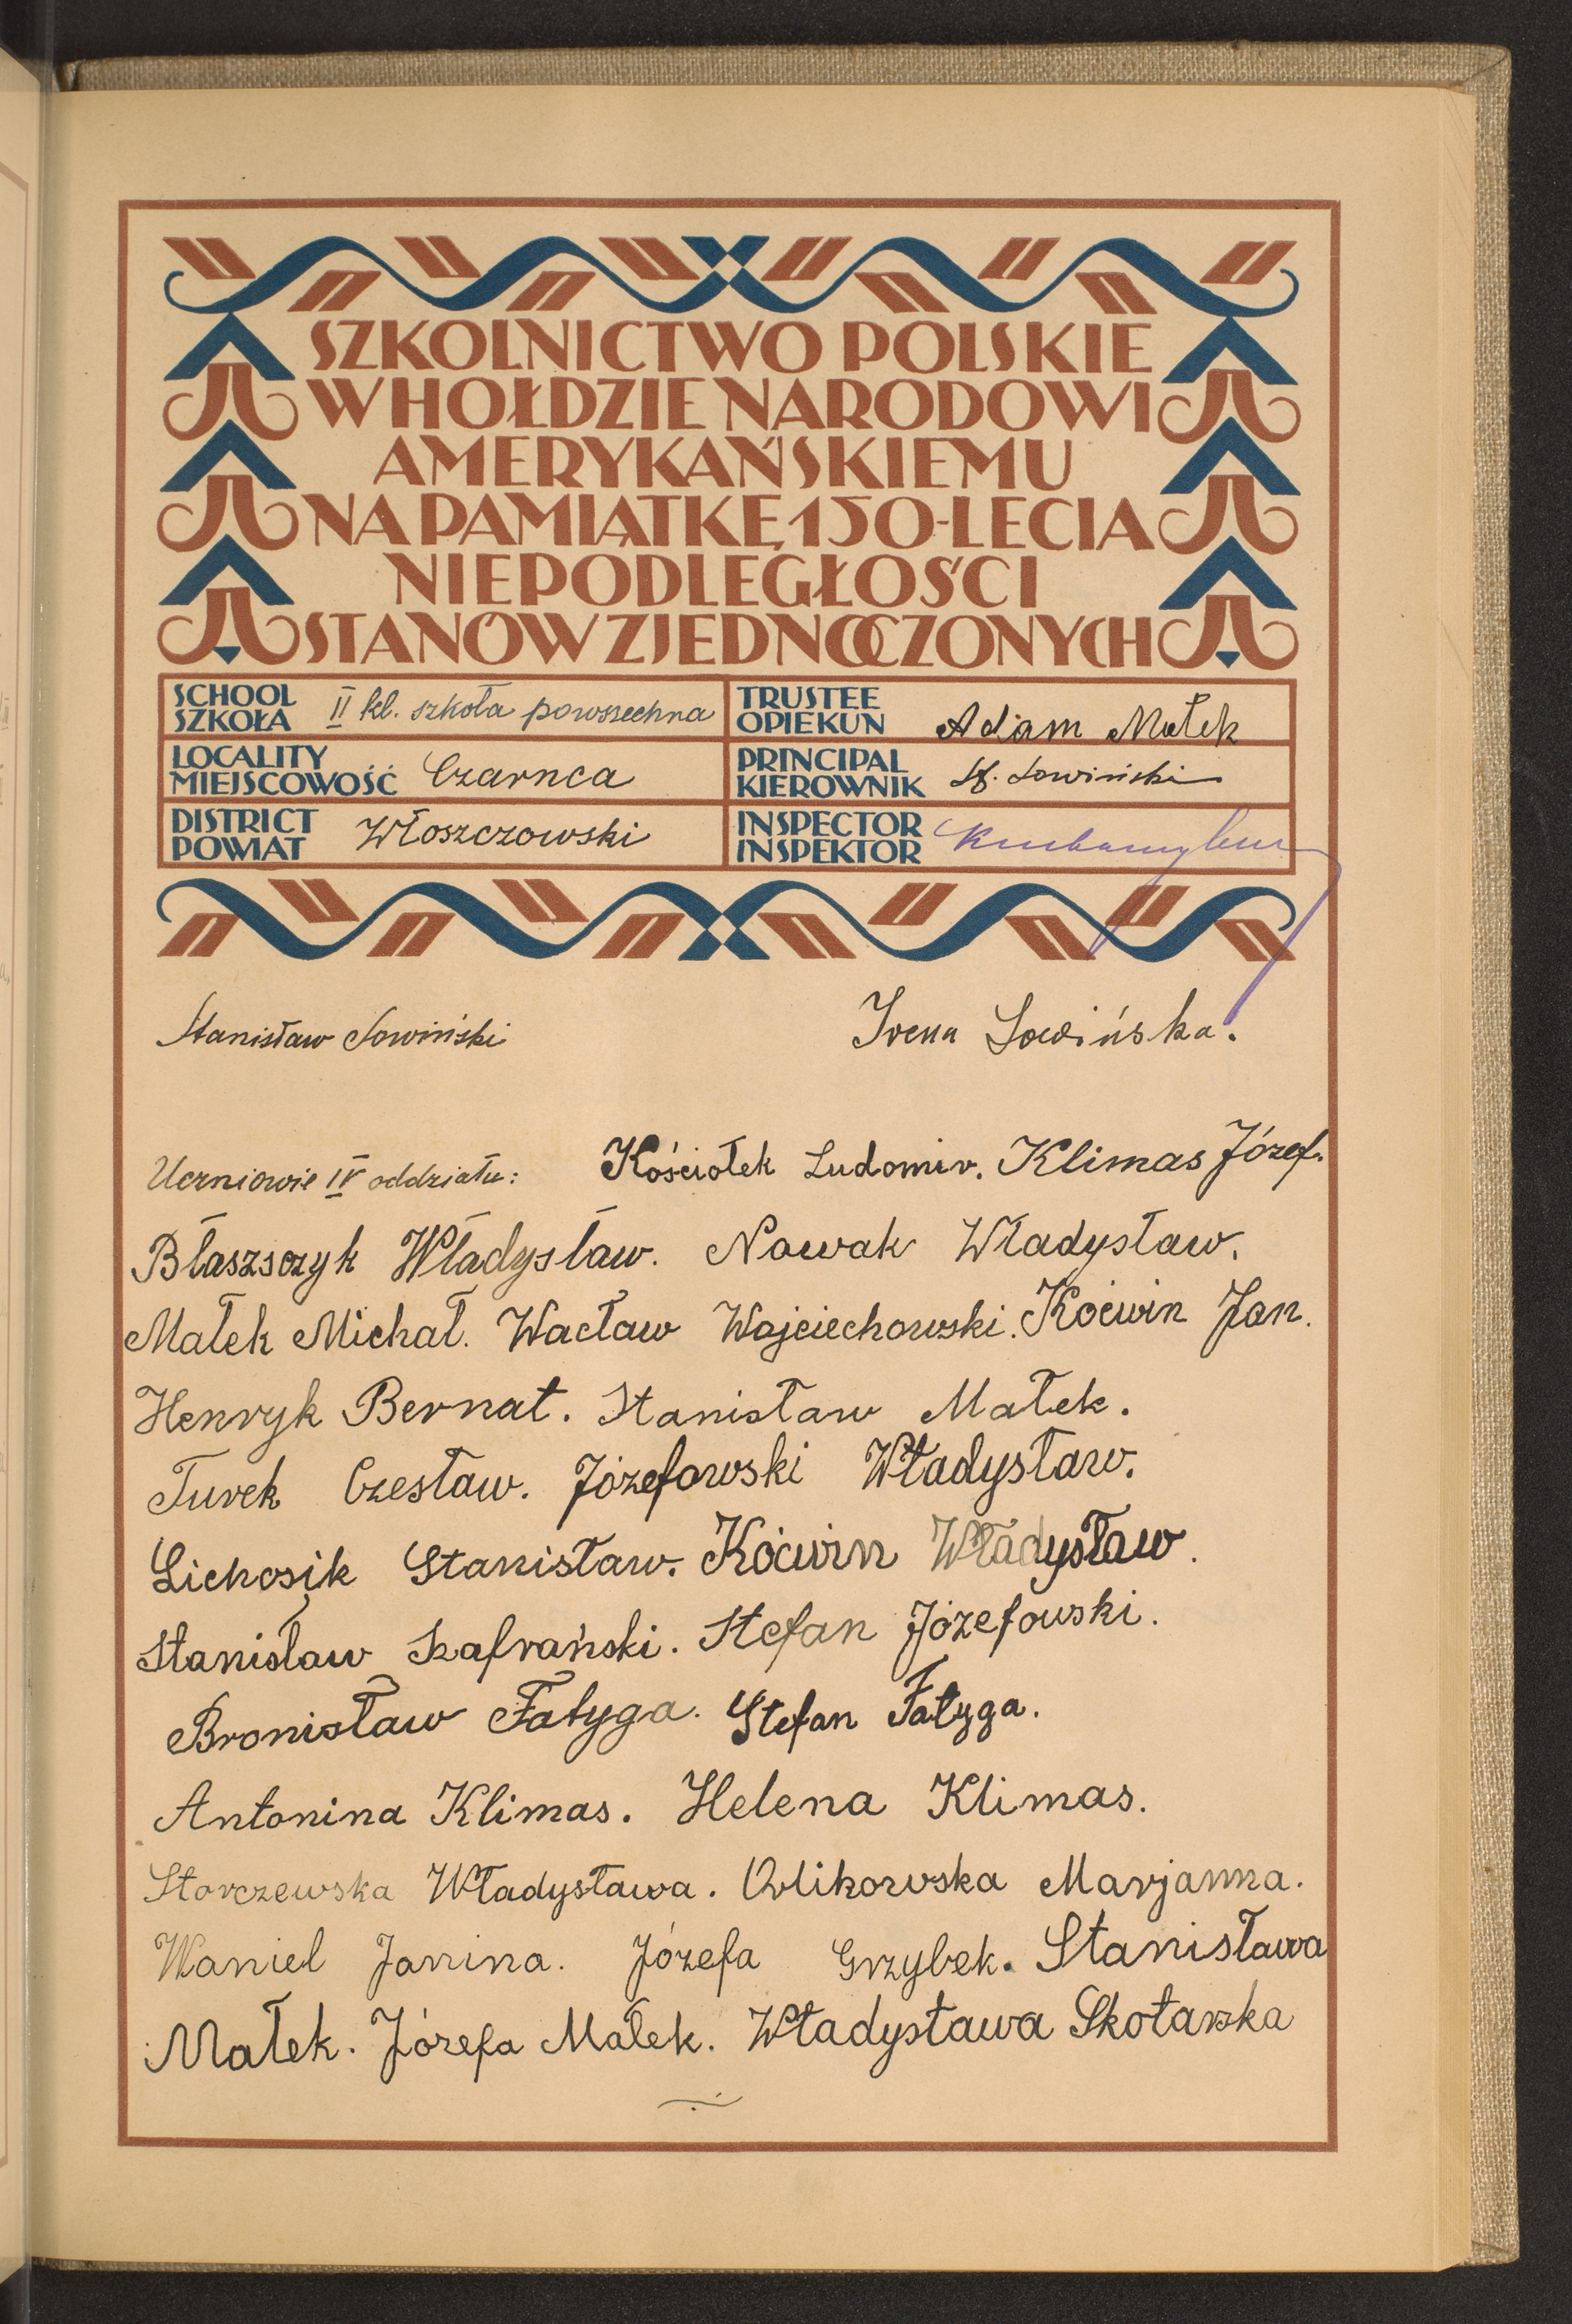 SZKOLNICTWO POLSKIE
W HOŁDZIE NARODOWI
AMERYKAŃSKIEMU
NA PAMIĄTKĘ 150-LECIA
NIEPODLEGŁOŚCI
STANÓW ZJEDNOCZONYCH
SCHOOL
SZKOŁA II kl. szkoła powszechna
TRUSTEE
OPIEKUN Adam Małek
LOCALITY
MIEJSCOWOŚĆ Czarnca
PRINCIPAL
KIEROWNIK St. Sowiński
DISTRICT
POWIAT Włoszczowski
INSPECTOR
INSPEKTOR
Stanisław Sowiński Irena Sowińska.
Uczniowie IV oddziału: Kościołek Ludomir. Klimas Józef.
Błaszsczyk Władysław. Nowak Władysław.
Małek Michał. Wacław Wojciechowski. Koćwin Jan.
Henryk Bernat. Stanisław Małek.
Turek Czesław. Józefowski Władysław.
Lichosik Stanisław. Koćwin Władysław.
Stanisław Szafrański. Stefan Józefowski.
Bronisław Fatyga. Stefan Fatyga.
Antonina Klimas. Helena Klimas.
Starczewska Władysława. Orlikowska Marjanna.
Waniel Janina. Józefa Grzybek. Stanisława
Małek. Józefa Małek. Władysława Skotarska